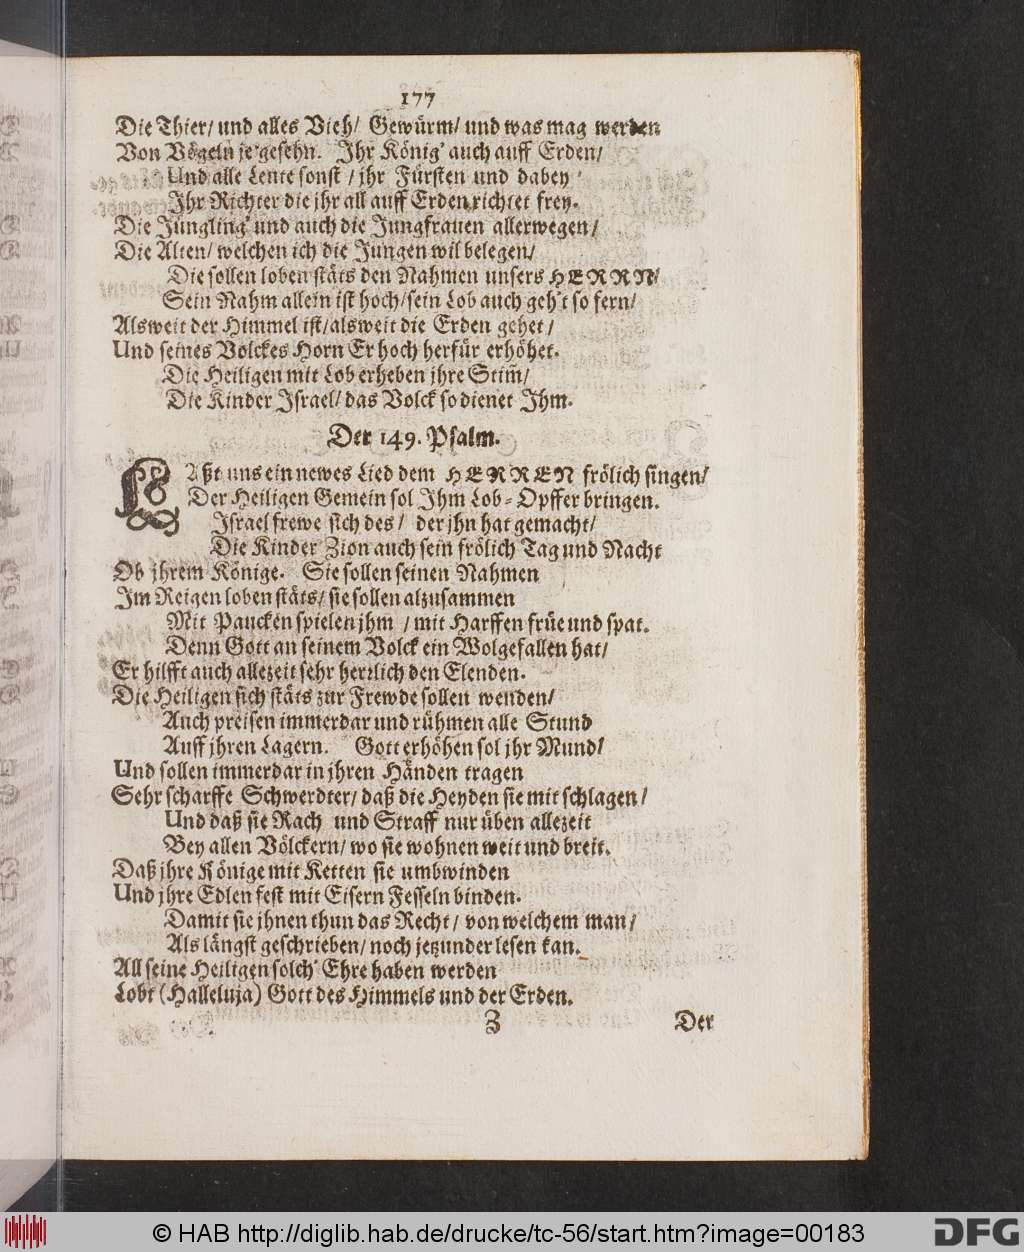 177
Die Thier/ und alles Vieh/ Gewürm/ und was mag werden
Von Vögeln je gesehn. Ihr König' auch auff Erden/
Und alle Leute sonst / jhr Fürsten und dabey
Ihr Richter die jhr all auff Erden richtet frey.
Die Jüngling' und auch die Jungfrauen allerwegen/
Die Alten/ welchen ich die Jungen wil belegen/
Die sollen loben stäts den Nahmen unsers HERRN/
Sein Nahm allein ist hoch/ sein Lob auch geh't so fern/
Alsweit der Himmel ist/ alsweit die Erden gehet/
Und seines Volckes Horn Er hoch herfür erhöhet.
Die Heiligen mit Lob erheben jhre Stim̃/
Die Kinder Israel/ das Volck so dienet Ihm.
Der 149. Psalm.
LAßt uns ein newes Lied dem HERREN frölich singen/
Der Heiligen Gemein sol Ihm Lob-Opffer bringen.
Israel frewe sich des/ der jhn hat gemacht/
Die Kinder Zion auch sein frölich Tag und Nacht
Ob jhrem Könige. Sie sollen seinen Nahmen
Im Reigen loben stäts/ sie sollen alzusammen
Mit Paucken spielen jhm / mit Harffen früe und spat.
Denn Gott an seinem Volck ein Wolgefallen hat/
Er hilfft auch allezeit sehr herrlich den Elenden.
Die Heiligen sich stäts zur Frewde sollen wenden/
Auch preisen immerdar und rühmen alle Stund
Auff jhren Lagern. Gott erhöhen sol jhr Mund/
Und sollen immerdar in jhren Händen tragen
Sehr scharffe Schwerdter/ daß die Heyden sie mit schlagen/
Und daß sie Rach und Straff nur üben allezeit
Bey allen Völckern/ wo sie wohnen weit und breit.
Daß jhre Könige mit Ketten sie umbwinden
Und jhre Edlen fest mit Eisern Fesseln binden.
Damit sie jhnen thun das Recht/ von welchem man/
Als längst geschrieben/ noch jetzunder lesen kan.
All seine Heiligen solch' Ehre haben werden
Lobt (Halleluja) Gott des Himmels und der Erden.
Z Der
© HAB http://diglib.hab.de/drucke/tc-56/start.htm?image=00183
DFG